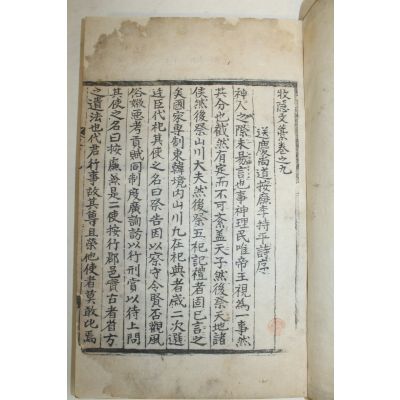 牧隱文藁卷之九
送慶尚道按廉李持平詩序
神人之際未易言也事神理民唯帝王視為一事然
其分也截然有定而不可紊盖天子然後祭天地諸
侯然後祭山川大夫然後祭五祀記禮者固已言之
矣國家專制東韓境內山川凡在祀典者歲二次選
近臣代祀其使之名曰祭告因以察守令賢否觀風
俗媺惡考貢賦同制度廣詢訪以行刑賞以待上問
其使之名曰按廉無是二使按行郡邑實古者省方
之遺法也代君行事故其尊且榮他使者莫敢比焉